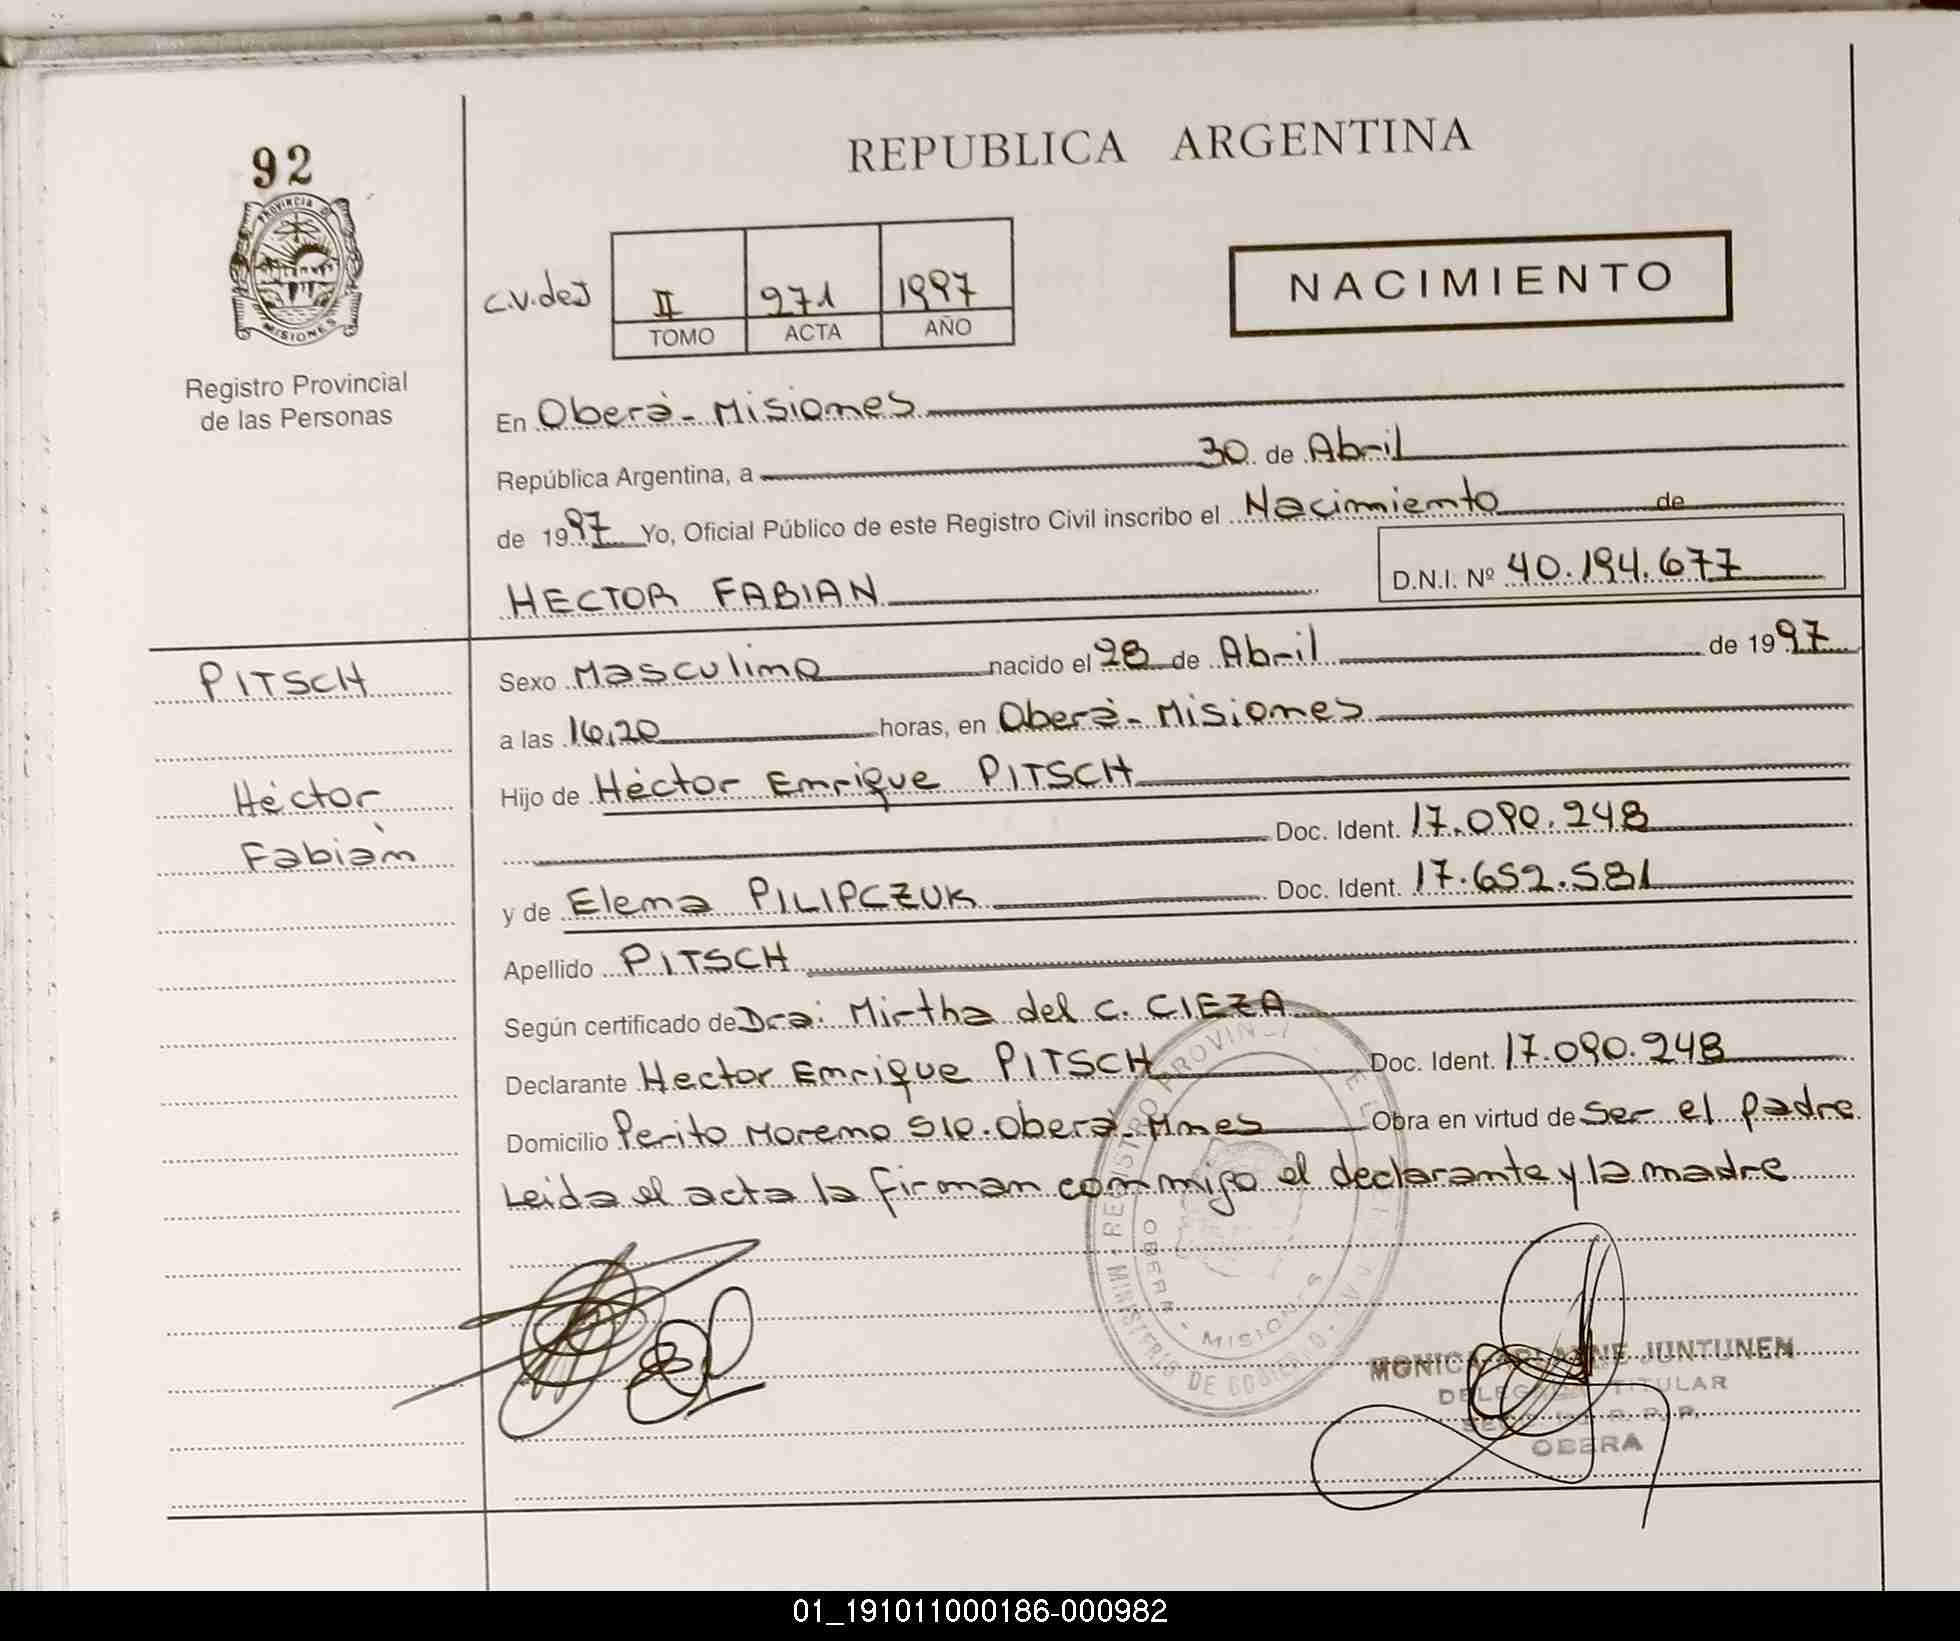 92
PROVINCIA D
MISIONES
Registro Provincial
de las Personas
REPUBLICA ARGENTINA
C.V.deJ
II 271 1997
TOMO ACTA AÑO
NACIMIENTO
En Oberà - Misiones
República Argentina, a 30 de Abril
de 1997 Yo, Oficial Público de este Registro Civil inscribo el Nacimiento de
HECTOR FABIAN D.N.I. Nº 40.194.677
PITSCH
Héctor
Fabiàn
Sexo Masculino nacido el 28 de Abril de 1997
a las 16,20 horas, en Oberà - Misiones
Hijo de Héctor Enrique PITSCH
Doc. Ident. 17.090.248
y de Elena PILIPCZUK Doc. Ident. 17.652.581
Apellido PITSCH
Según certificado de Dra: Mirtha del C. CIEZA
Declarante Hector Enrique PITSCH Doc. Ident. 17.090.248
Domicilio Perito Moreno S/Nº. Oberà - Mnes Obra en virtud de ser el padre
Leida el acta la firman conmigo el declarante y la madre
REGISTRO PROVIN
OBERA - MISIONES
MINISTERIO DE GOBIERNO
MONICA JUNTUNEN
DELEGADA TITULAR
R. P. P.
OBERA
01_191011000186-000982